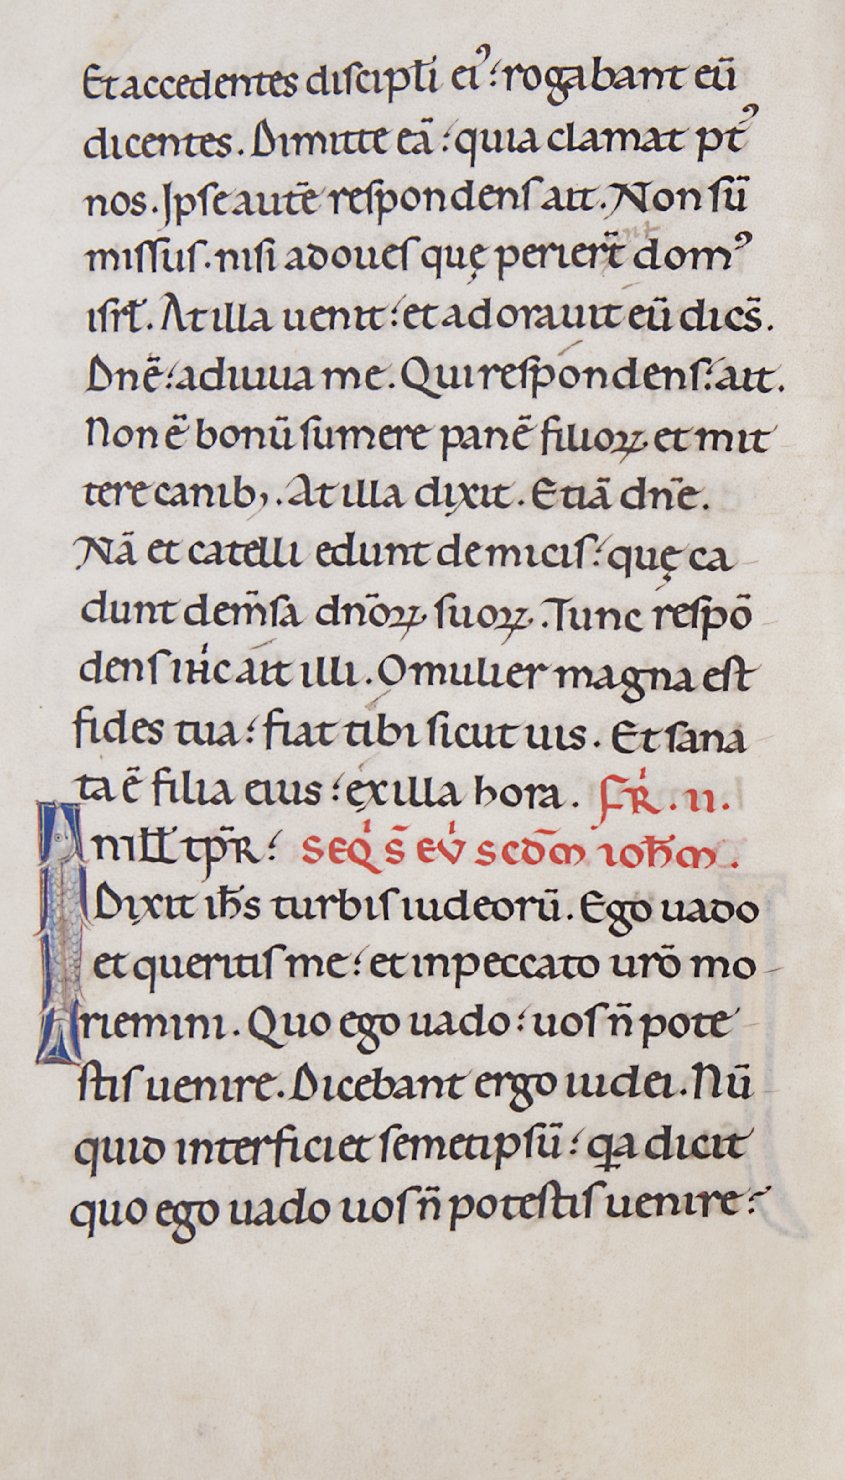 Et accedentes discipłi eiꝰ: rogabant eū
dicentes. Dimitte eā: quia clamat pt̄ꝰ
nos. Ipse autē respondens ait. Non sū
missus. nisi ad oues quę perier̄t domꝰ
isrł. At illa uenit: et adorauit eū dics̄.
Dnē: adiuua me. Qui respondens: ait.
Non ē bonū sumere panē filioꝝ. et mit
tere canibꝫ. At illa dixit. Etiā dn̄e.
Nā et catelli edunt de micis: quę ca
dunt de m̄sa dn̄oꝝ suoꝝ. Tunc respō
dens ihc ait illi. O mulier magna est
fides tua: fiat tibi sicut uis. Et sana
ta ē filia eius: ex illa hora. FR̄. II.
In ill̄ tp̄r: SEQ̄ S̄ EV̄ SCD̄M IOH̄M.
Dixit ih̄s turbis iudeorū. Ego uado
et queritis me: et in peccato ur̄o mo
riemini. Quo ego uado: uos n̄ pote
stis uenire. Dicebant ergo iudei. Nū
quid interficiet semetipsū: qa dicit
quo ego uado uos n̄ potestis uenire: